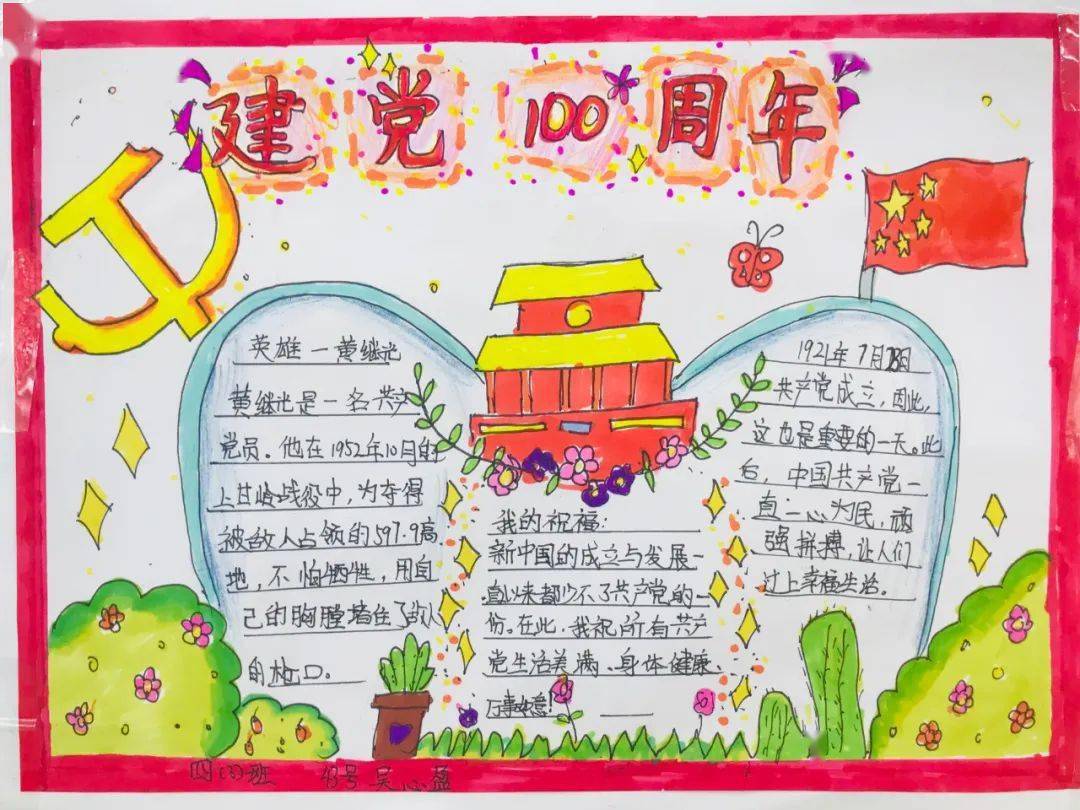 建党100周年
英雄—黄继光
黄继光是一名共产
党员。他在1952年10月的
上甘岭战役中，为夺得
被敌人占领的597.9高
地，不怕牺牲，用自
己的胸膛堵住了敌人
的枪口。
我的祝福：
新中国的成立与发展一
直以来都少不了共产党的一
份。在此，我祝所有共产
党生活美满、身体健康、
万事如意！
1921年7月23日
共产党成立，因此，
这也是重要的一天。此
后，中国共产党一
直一心为民，顽
强拼搏，让人们
过上幸福生活。
四（3）班 43号 吴心盈